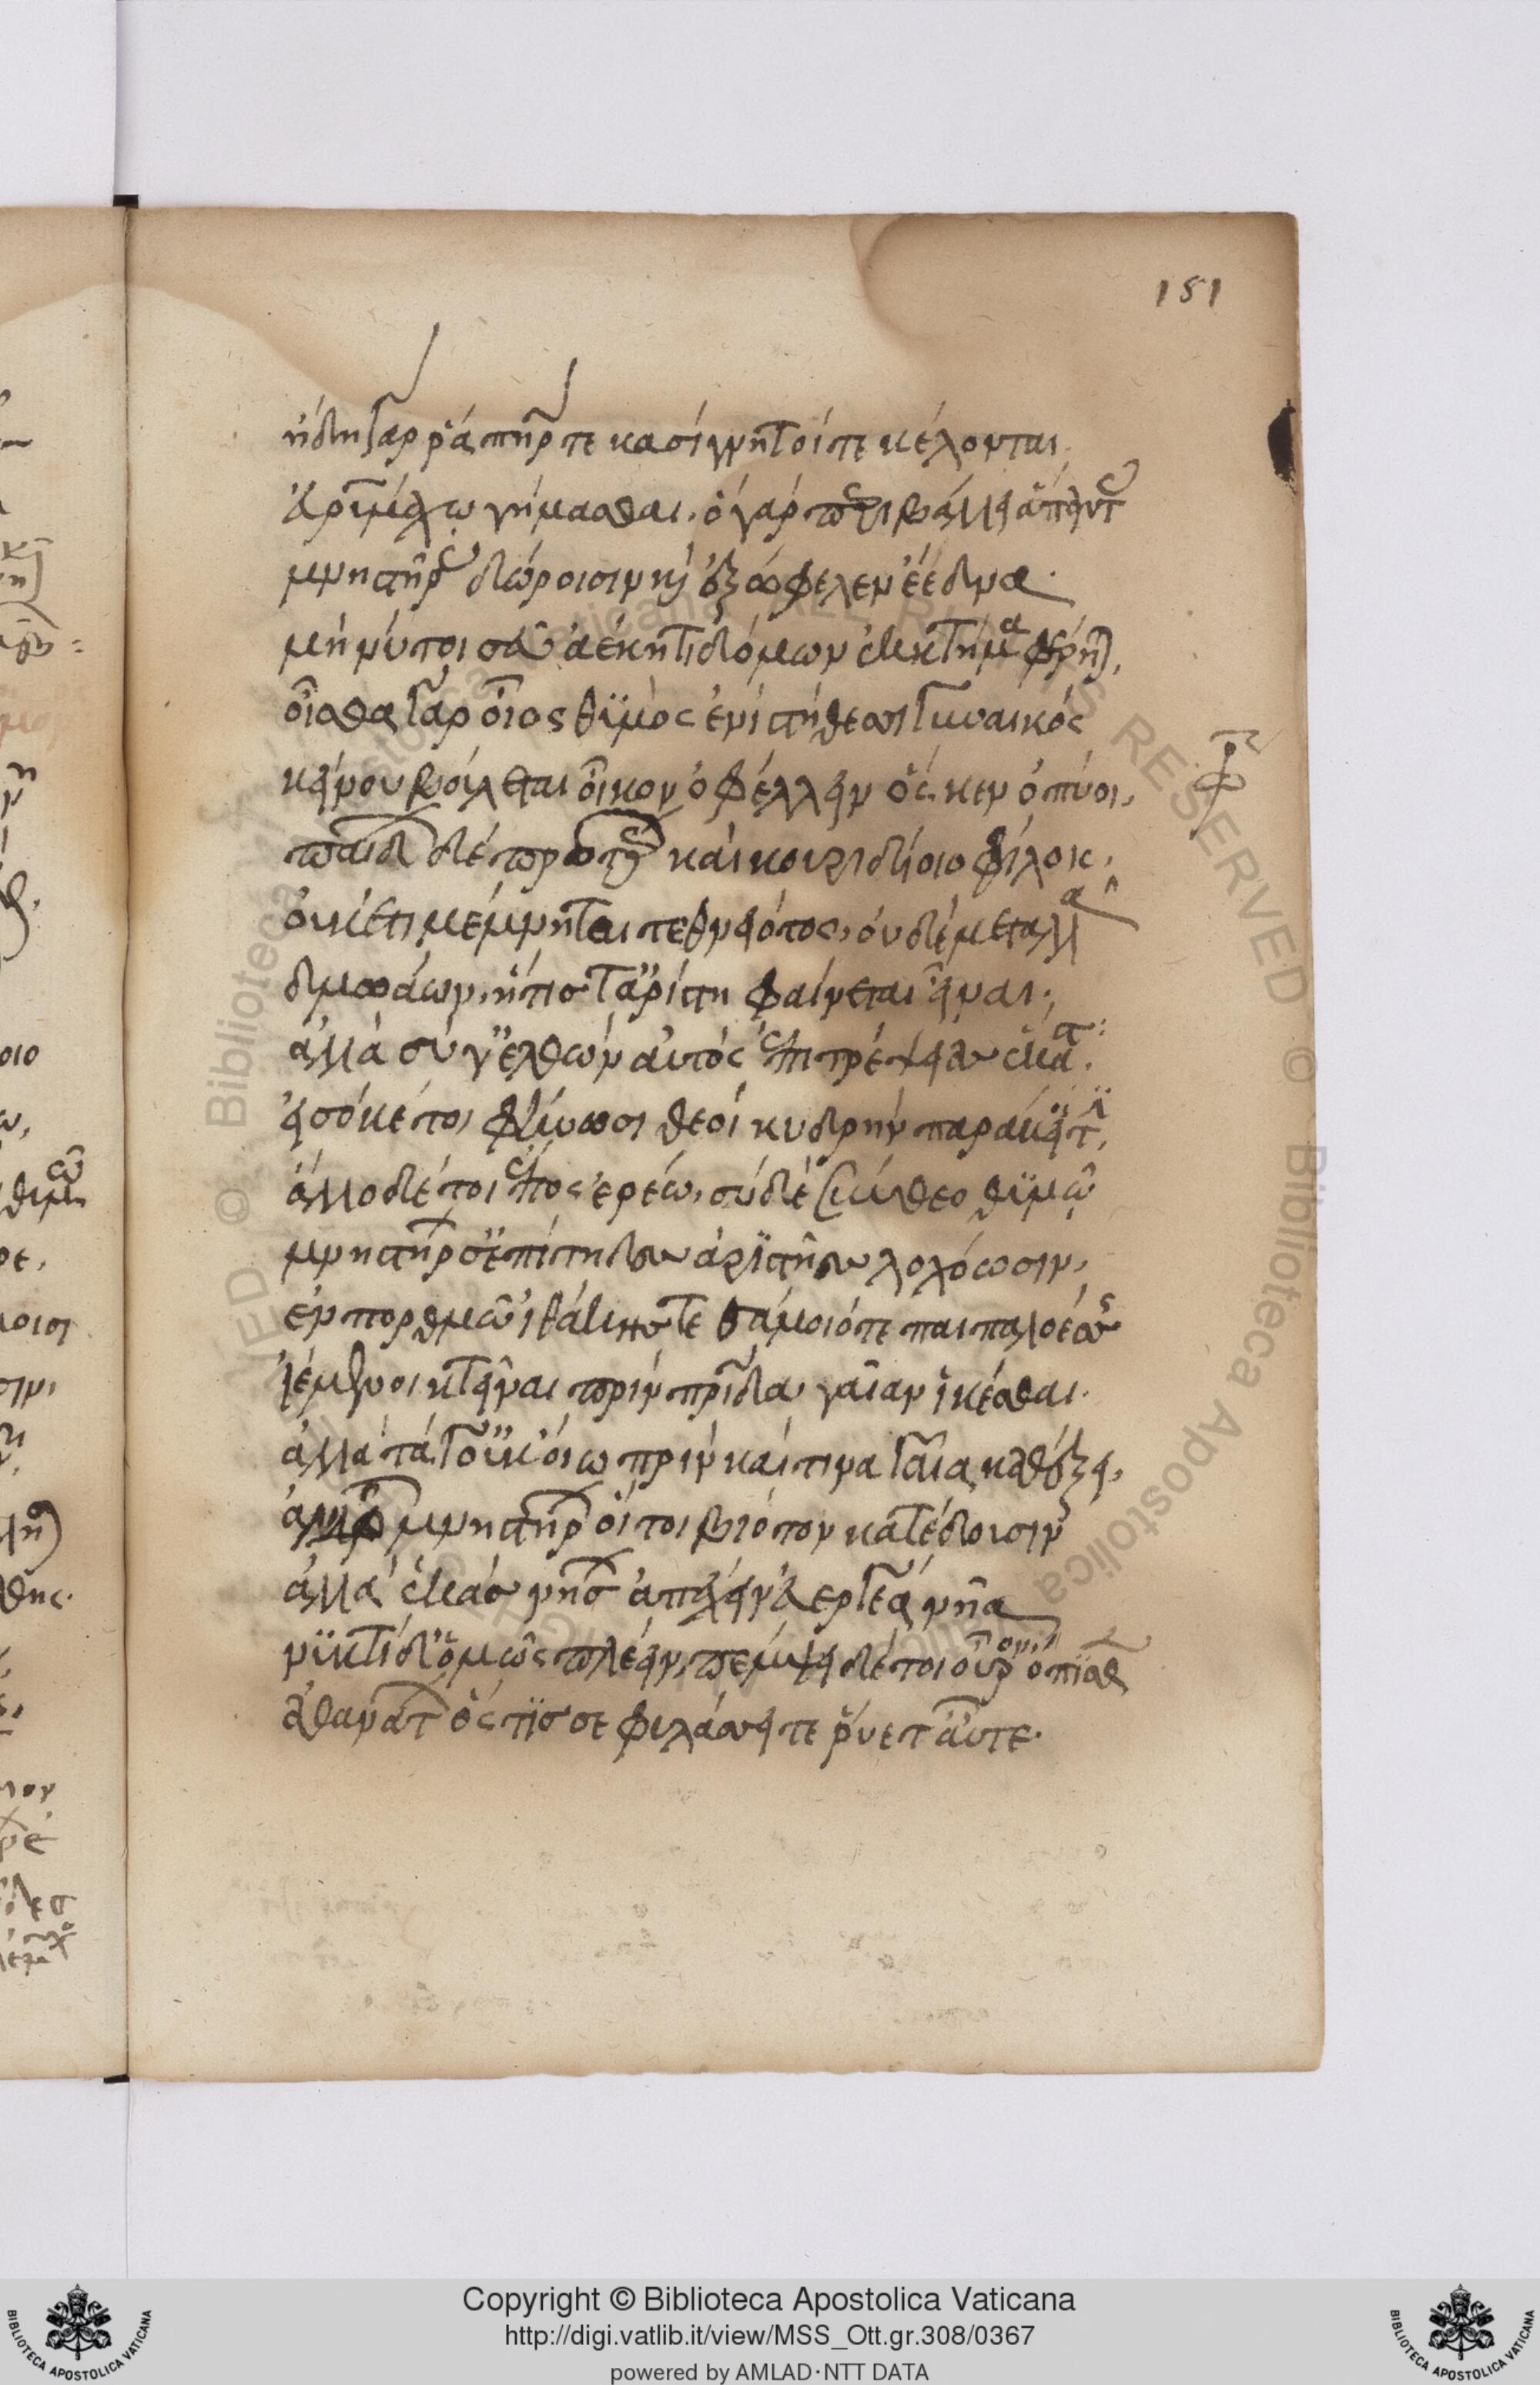 151
ἤδη γάρ ῥα πατήρ τε κασίγνητοί τε κέλονται
Εὐρυμάχω γήμασθαι· ὁ γὰρ περιβάλλει ἅπαντας
μνηστῆρας δώροισιν καὶ ἐξώφελλεν ἔεδνα·
μή νύ τοι σεῦ ἀέκητι δόμων ἐκ κτῆμα φέρηται,
οἶσθα γὰρ οἷος θυμὸς ἐνὶ στήθεσσι γυναικός
κείνου βούλεται οἶκον ὀφέλλειν ὅς κεν ὀπύοι,
παίδων δὲ προτέρων καὶ κουριδίοιο φίλοιο,
οὐκέτι μέμνηται τεθνειότος, οὐδὲ μεταλλᾶ
δμωάων, ἥτις τ' ἀρίστη φαίνεται εἶναι·
ἀλλὰ σύ γ' ἐλθὼν αὐτός ἐπιτρέψειαν ἕκαστα·
εἰσόκε τοι φήνωσι θεοὶ κυδρὴν παράκοιτιν,
ἄλλο δέ τοι ἔπος ἐρέω, σὺ δὲ σύνθεο θυμῶ
μνηστήρων σ' ἐπιτηδὲς ἀριστῆες λοχόωσιν,
ἐν πορθμῶ Ἰθάκης τε Σάμοιό τε παιπαλοέσσης
ἱέμενοι κτεῖναι πρὶν πατρίδα γαῖαν ἱκέσθαι·
ἀλλὰ τά γ' οὐκ ὀίω πρὶν καί τινα γαῖα καθέξει,
ἀνδρῶν μνηστήρων οἵ τοι βίοτον κατέδουσιν
ἀλλὰ ἑκὰς νήσων ἀπέχειν εὐεργέα νῆα
νυκτὶ δ' ὁμῶς πλέειν, πέμψει δέ τοι οὖρον ὄπισθεν
ἀθανάτων ὅς τίς σε φυλάσσει τε ῥύεται αὖτε·
Copyright © Biblioteca Apostolica Vaticana
http://digi.vatlib.it/view/MSS_Ott.gr.308/0367
powered by AMLAD·NTT DATA